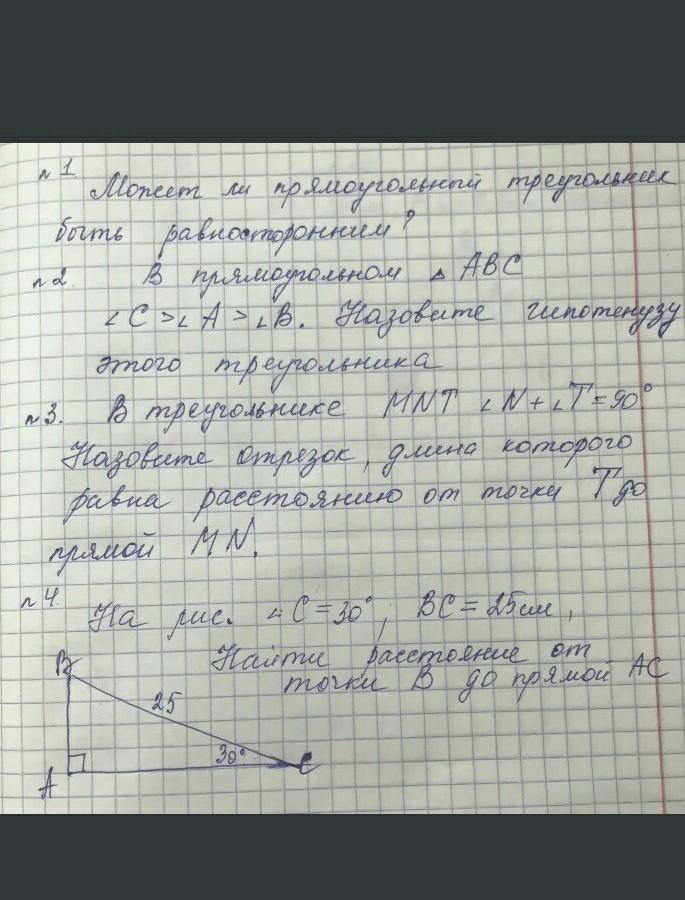 n 1 Может ли прямоугольный треугольник
быть равносторонним?
n 2. В прямоугольном △ ABC
∠C > ∠A > ∠B. Назовите гипотенузу
этого треугольника
n 3. В треугольнике MNT ∠N + ∠T = 90°
Назовите отрезок, длина которого
равна расстоянию от точки T до
прямой MN.
n 4. На рис. ∠C = 30°, BC = 25 см,
Найти расстояние от
точки B до прямой AC
B
25
30°
C
A